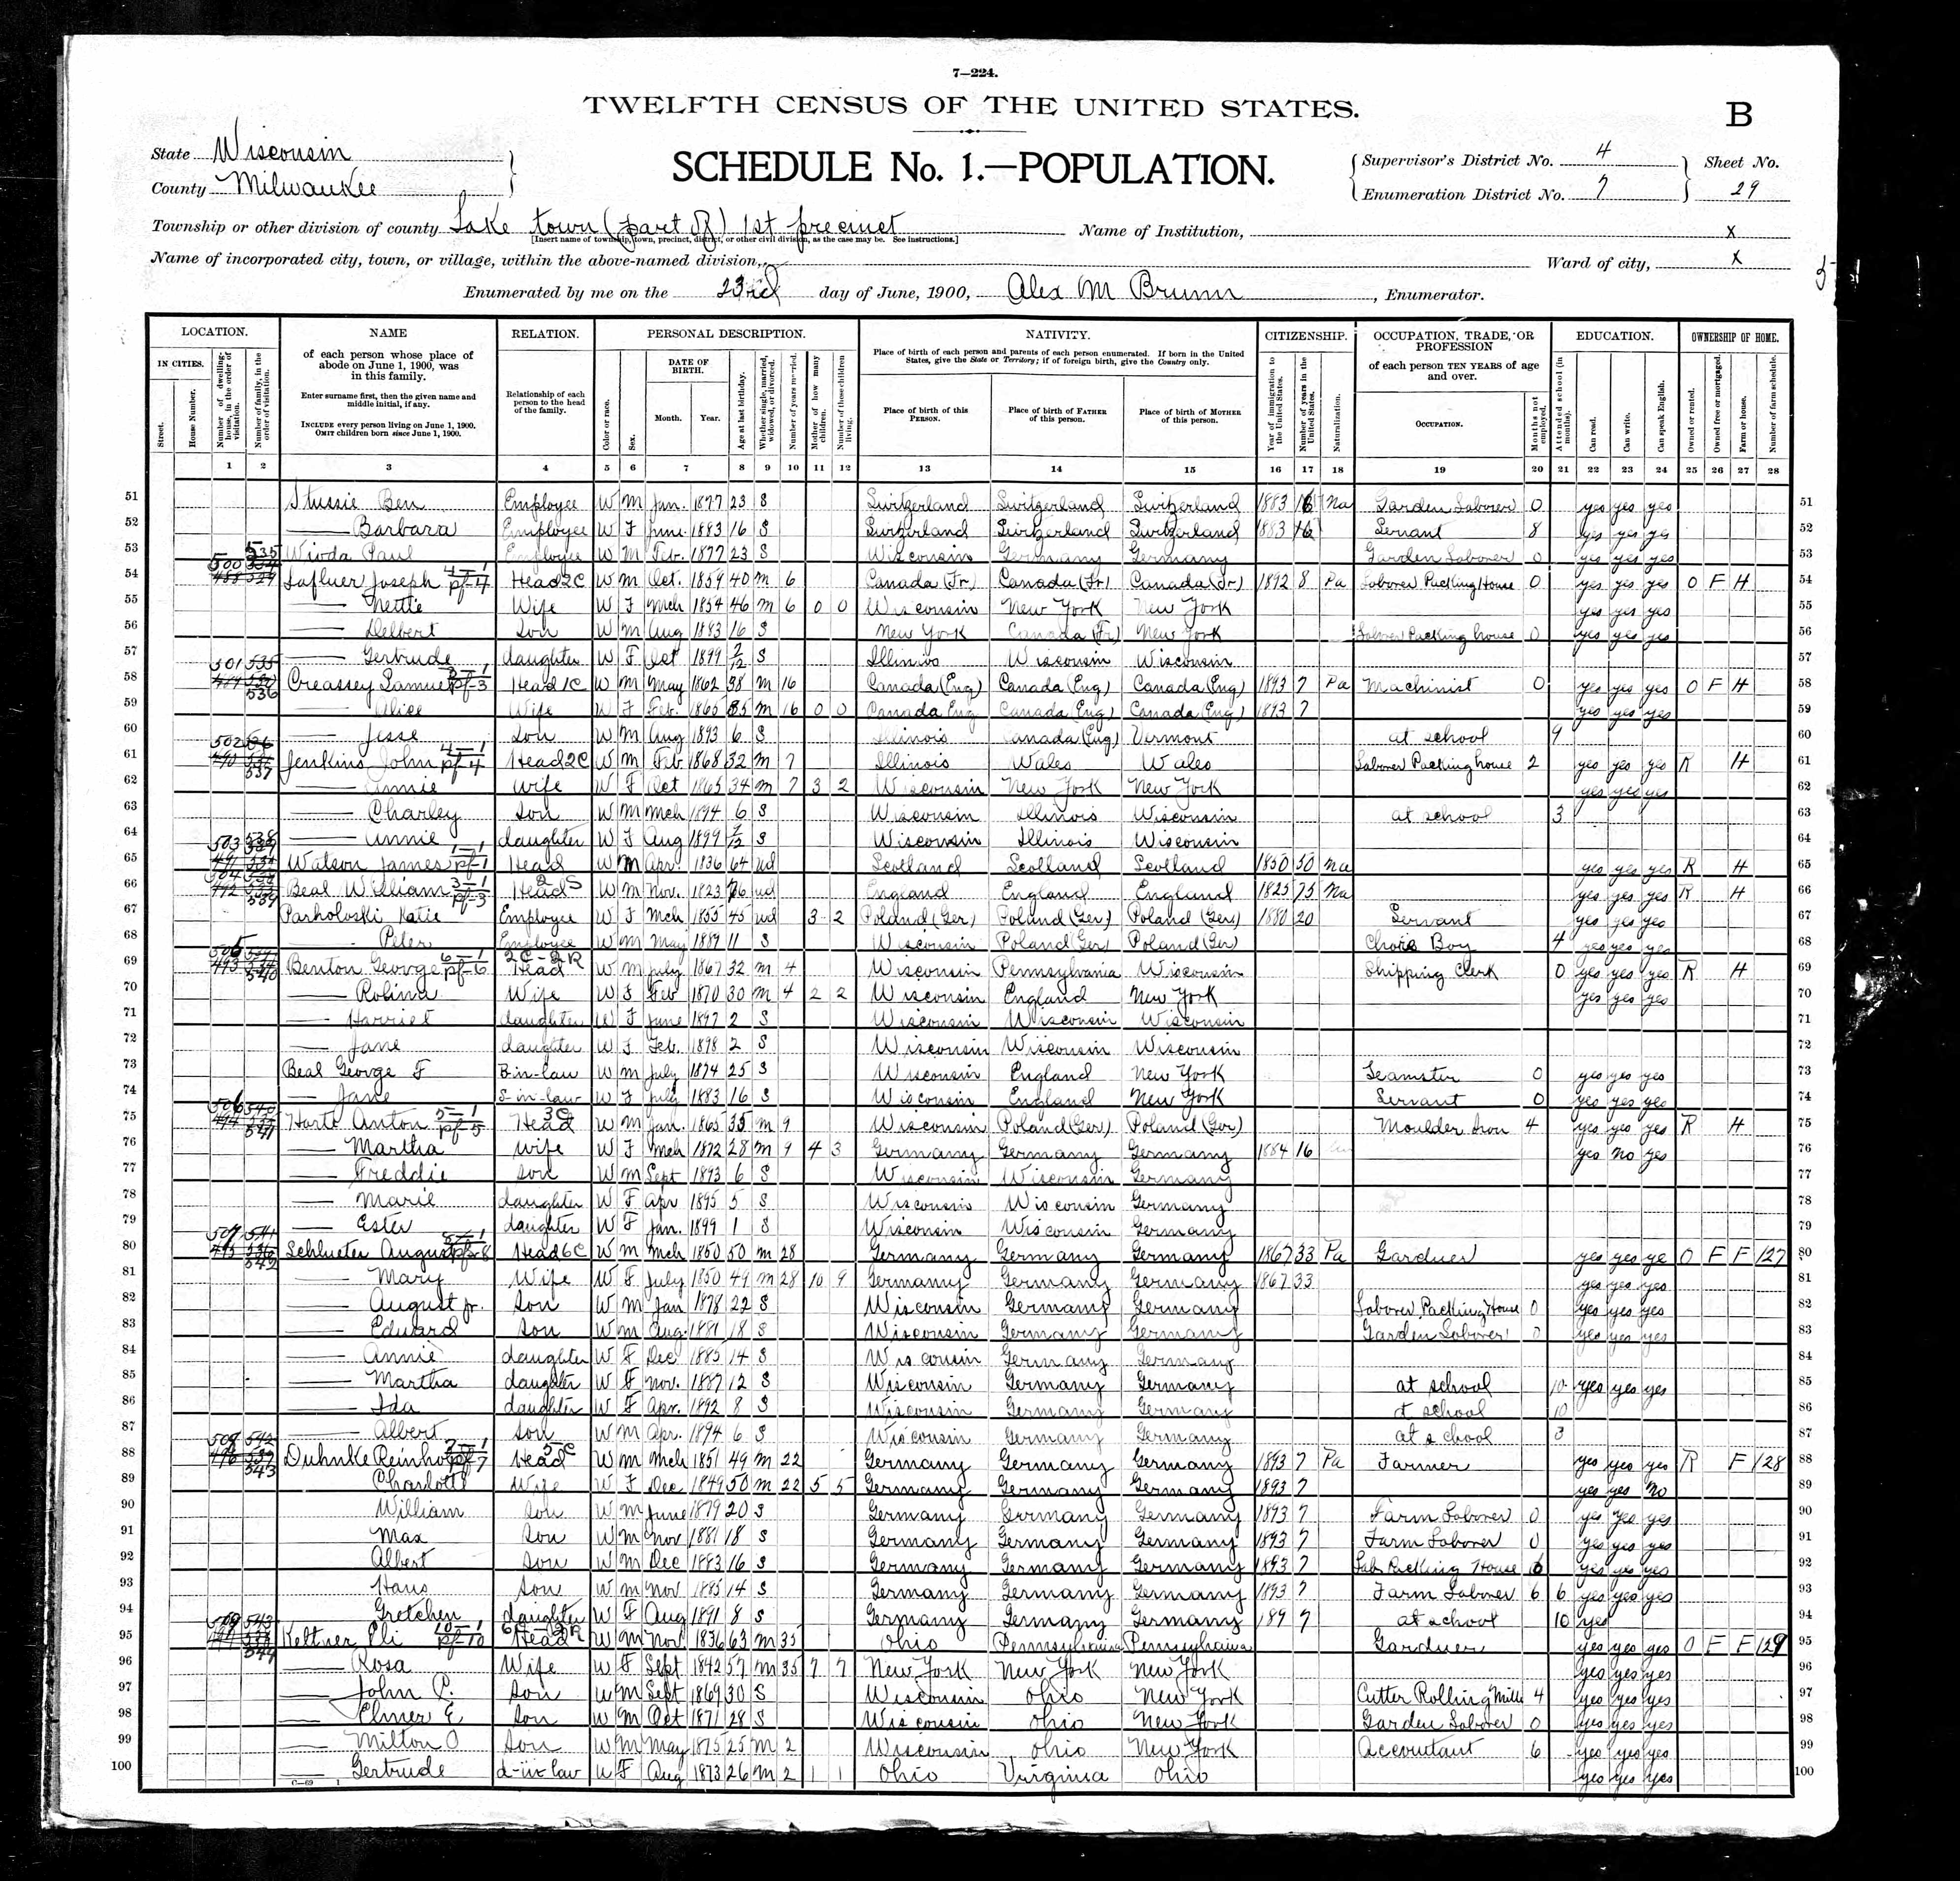 7—224.
TWELFTH CENSUS OF THE UNITED STATES.
B
State Wisconsin
County Milwaukee
SCHEDULE No. 1.—POPULATION.
Supervisor's District No. 4
Enumeration District No. 7
Sheet No. 29
Township or other division of county Lake town (part of) 1st precinct
[Insert name of township, town, precinct, district, or other civil division, as the case may be. See instructions.]
Name of Institution, x
Name of incorporated city, town, or village, within the above-named division,
Ward of city, x
Enumerated by me on the 23rd day of June, 1900, Alex M Brunn, Enumerator.
LOCATION. NAME RELATION. PERSONAL DESCRIPTION. NATIVITY. CITIZENSHIP. OCCUPATION, TRADE, OR PROFESSION EDUCATION. OWNERSHIP OF HOME.
IN CITIES. Street. House Number. Number of dwelling-house, in the order of visitation. Number of family, in the order of visitation.
of each person whose place of abode on June 1, 1900, was in this family.
Enter surname first, then the given name and middle initial, if any.
INCLUDE every person living on June 1, 1900. OMIT children born since June 1, 1900.
Relationship of each person to the head of the family.
Color or race. Sex. DATE OF BIRTH. Month. Year. Age at last birthday. Whether single, married, widowed, or divorced. Number of years married. Mother of how many children. Number of these children living.
Place of birth of each person and parents of each person enumerated. If born in the United States, give the State or Territory; if of foreign birth, give the Country only.
Place of birth of this PERSON. Place of birth of FATHER of this person. Place of birth of MOTHER of this person.
Year of immigration to the United States. Number of years in the United States. Naturalization.
of each person TEN YEARS of age and over. OCCUPATION. Months not employed.
Attended school (in months). Can read. Can write. Can speak English.
Owned or rented. Owned free or mortgaged. Farm or house. Number of farm schedule.
1 2 3 4 5 6 7 8 9 10 11 12 13 14 15 16 17 18 19 20 21 22 23 24 25 26 27 28
51 Stussie Ben Employee W M Jan. 1877 23 S Switzerland Switzerland Switzerland 1883 16 Na Garden Laborer 0 yes yes yes 51
52 —— Barbara Employee W F June 1883 16 S Switzerland Switzerland Switzerland 1883 16 Servant 8 yes yes yes 52
53 Wivda Paul Employee W M Feb. 1877 23 S Wisconsin Germany Germany Garden Laborer 0 yes yes yes 53
54 500 535 Lafluer Joseph Head 2C W M Oct. 1859 40 M 6 Canada (Fr) Canada (Fr) Canada (Fr) 1892 8 Pa Laborer Packing House 0 yes yes yes O F H 54
55 —— Nettie Wife W F Mch 1854 46 M 6 0 0 Wisconsin New York New York yes yes yes 55
56 —— Delbert Son W M Aug 1883 16 S New York Canada (Fr) New York Laborer Packing house 0 yes yes yes 56
57 —— Gertrude daughter W F Oct 1899 7/12 S Illinois Wisconsin Wisconsin 57
58 501 536 Creassey Samuel Head 1C W M May 1862 38 M 16 Canada (Eng) Canada (Eng) Canada (Eng) 1893 7 Pa Machinist 0 yes yes yes O F H 58
59 —— Alice Wife W F Feb. 1865 35 M 16 0 0 Canada Eng Canada (Eng) Canada (Eng) 1893 7 yes yes yes 59
60 —— Jesse Son W M Aug 1893 6 S Illinois Canada (Eng) Vermont at school 9 60
61 502 537 Jenkins John Head 2C W M Feb. 1868 32 M 7 Illinois Wales Wales Laborer Packing house 2 yes yes yes R H 61
62 —— Annie Wife W F Oct 1865 34 M 7 3 2 Wisconsin New York New York yes yes yes 62
63 —— Charley Son W M Mch 1894 6 S Wisconsin Illinois Wisconsin at school 3 63
64 —— Annie daughter W F Aug 1899 S Wisconsin Illinois Wisconsin 64
65 503 538 Watson James Head W M Apr. 1836 64 wd Scotland Scotland Scotland 1850 50 Na yes yes yes R H 65
66 504 539 Beal William Head 2S W M Nov. 1823 76 wd England England England 1825 75 Na yes yes yes R H 66
67 Parholoski Katie Employee W F Mch 1855 45 wd 3 2 Poland (Ger) Poland (Ger) Poland (Ger) 1880 20 Servant yes yes yes 67
68 —— Peter Employee W M May 1889 11 S Wisconsin Poland (Ger) Poland (Ger) Chore Boy 4 yes yes yes 68
69 505 540 Benton George 2C-2R Head W M July 1867 32 M 4 Wisconsin Pennsylvania Wisconsin Shipping Clerk 0 yes yes yes R H 69
70 —— Rolina Wife W F Feb 1870 30 M 4 2 2 Wisconsin England New York yes yes yes 70
71 —— Harriet daughter W F June 1897 2 S Wisconsin Wisconsin Wisconsin 71
72 —— Jane daughter W F Feb. 1898 2 S Wisconsin Wisconsin Wisconsin 72
73 Beal George F B-in-law W M July 1874 25 S Wisconsin England New York Teamster 0 yes yes yes 73
74 —— Jane S-in-law W F July 1883 16 S Wisconsin England New York Servant 0 yes yes yes 74
75 506 541 Hartz Anton 3C Head W M Jan. 1865 35 M 9 Wisconsin Poland (Ger) Poland (Ger) Moulder Iron 4 yes yes yes R H 75
76 —— Martha Wife W F Mch 1872 28 M 9 4 3 Germany Germany Germany 1884 16 yes no yes 76
77 —— Freddie Son W M Sept 1893 6 S Wisconsin Wisconsin Germany 77
78 —— Marie daughter W F Apr 1895 5 S Wisconsin Wisconsin Germany 78
79 —— Ester daughter W F Jan. 1899 1 S Wisconsin Wisconsin Germany 79
80 507 542 Schlueter August Head 6C W M Mch 1850 50 M 28 Germany Germany Germany 1867 33 Pa Gardner yes yes ye O F F 127 80
81 —— Mary Wife W F July 1850 49 M 28 10 9 Germany Germany Germany 1867 33 yes yes yes 81
82 —— August Jr. Son W M Jan 1878 22 S Wisconsin Germany Germany Laborer Packing House 0 yes yes yes 82
83 —— Edward Son W M Aug. 1881 18 S Wisconsin Germany Germany Garden Laborer 0 yes yes yes 83
84 —— Annie daughter W F Dec 1885 14 S Wisconsin Germany Germany 84
85 —— Martha daughter W F Nov. 1887 12 S Wisconsin Germany Germany at school 10 yes yes yes 85
86 —— Ida daughter W F Apr. 1892 8 S Wisconsin Germany Germany at school 10 86
87 —— Albert Son W M Apr. 1894 6 S Wisconsin Germany Germany at school 8 87
88 508 543 Duhnke Reinhold 5C Head W M Mch 1851 49 M 22 Germany Germany Germany 1893 7 Pa Farmer yes yes yes R F 128 88
89 Charlotte Wife W F Dec 1849 50 M 22 5 5 Germany Germany Germany 1893 7 yes yes no 89
90 William Son W M June 1879 20 S Germany Germany Germany 1893 7 Farm Laborer 0 yes yes yes 90
91 Max Son W M Nov 1881 18 S Germany Germany Germany 1893 7 Farm Laborer 0 yes yes yes 91
92 Albert Son W M Dec 1883 16 S Germany Germany Germany 1893 7 Lab Packing House 6 yes yes yes 92
93 Hans Son W M Nov 1885 14 S Germany Germany Germany 1893 7 Farm Laborer 6 6 yes yes yes 93
94 Gretchen daughter W F Aug 1891 8 S Germany Germany Germany 189 7 at school 10 yes 94
95 509 544 Keltner Eli Head W M Nov 1836 63 M 35 Ohio Pennsylvania Pennsylvania Gardner yes yes yes O F F 129 95
96 —— Rosa Wife W F Sept 1842 57 M 35 7 7 New York New York New York yes yes yes 96
97 —— John P. Son W M Sept 1869 30 S Wisconsin Ohio New York Cutter Rolling Mills 4 yes yes yes 97
98 —— Elmer E Son W M Oct 1871 28 S Wisconsin Ohio New York Garden Laborer 0 yes yes yes 98
99 —— Milton O Son W M May 1875 25 M 2 Wisconsin Ohio New York Accoutant 6 yes yes yes 99
100 —— Gertrude d-in law W F Aug 1873 26 M 2 1 1 Ohio Virginia Ohio yes yes yes 100